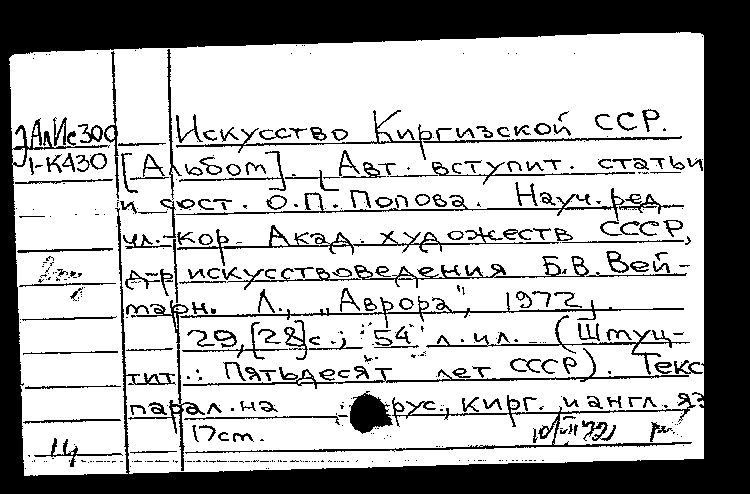 ЗАлИс300
1-К430
Искусство Киргизской ССР.
[Альбом]. [Авт. вступит. статьи
и сост. О.П. Попова. Науч. ред.
чл.-кор. Акад. художеств СССР,
д-р искусствоведения Б.В. Вей-
марн. Л., „Аврора", 1972].
29,[28]с.; 54 л.ил. (Штуц-
тит.: Пятьдесят лет СССР). Текс
парал. на рус., кирг. и англ. яз
17см.
14